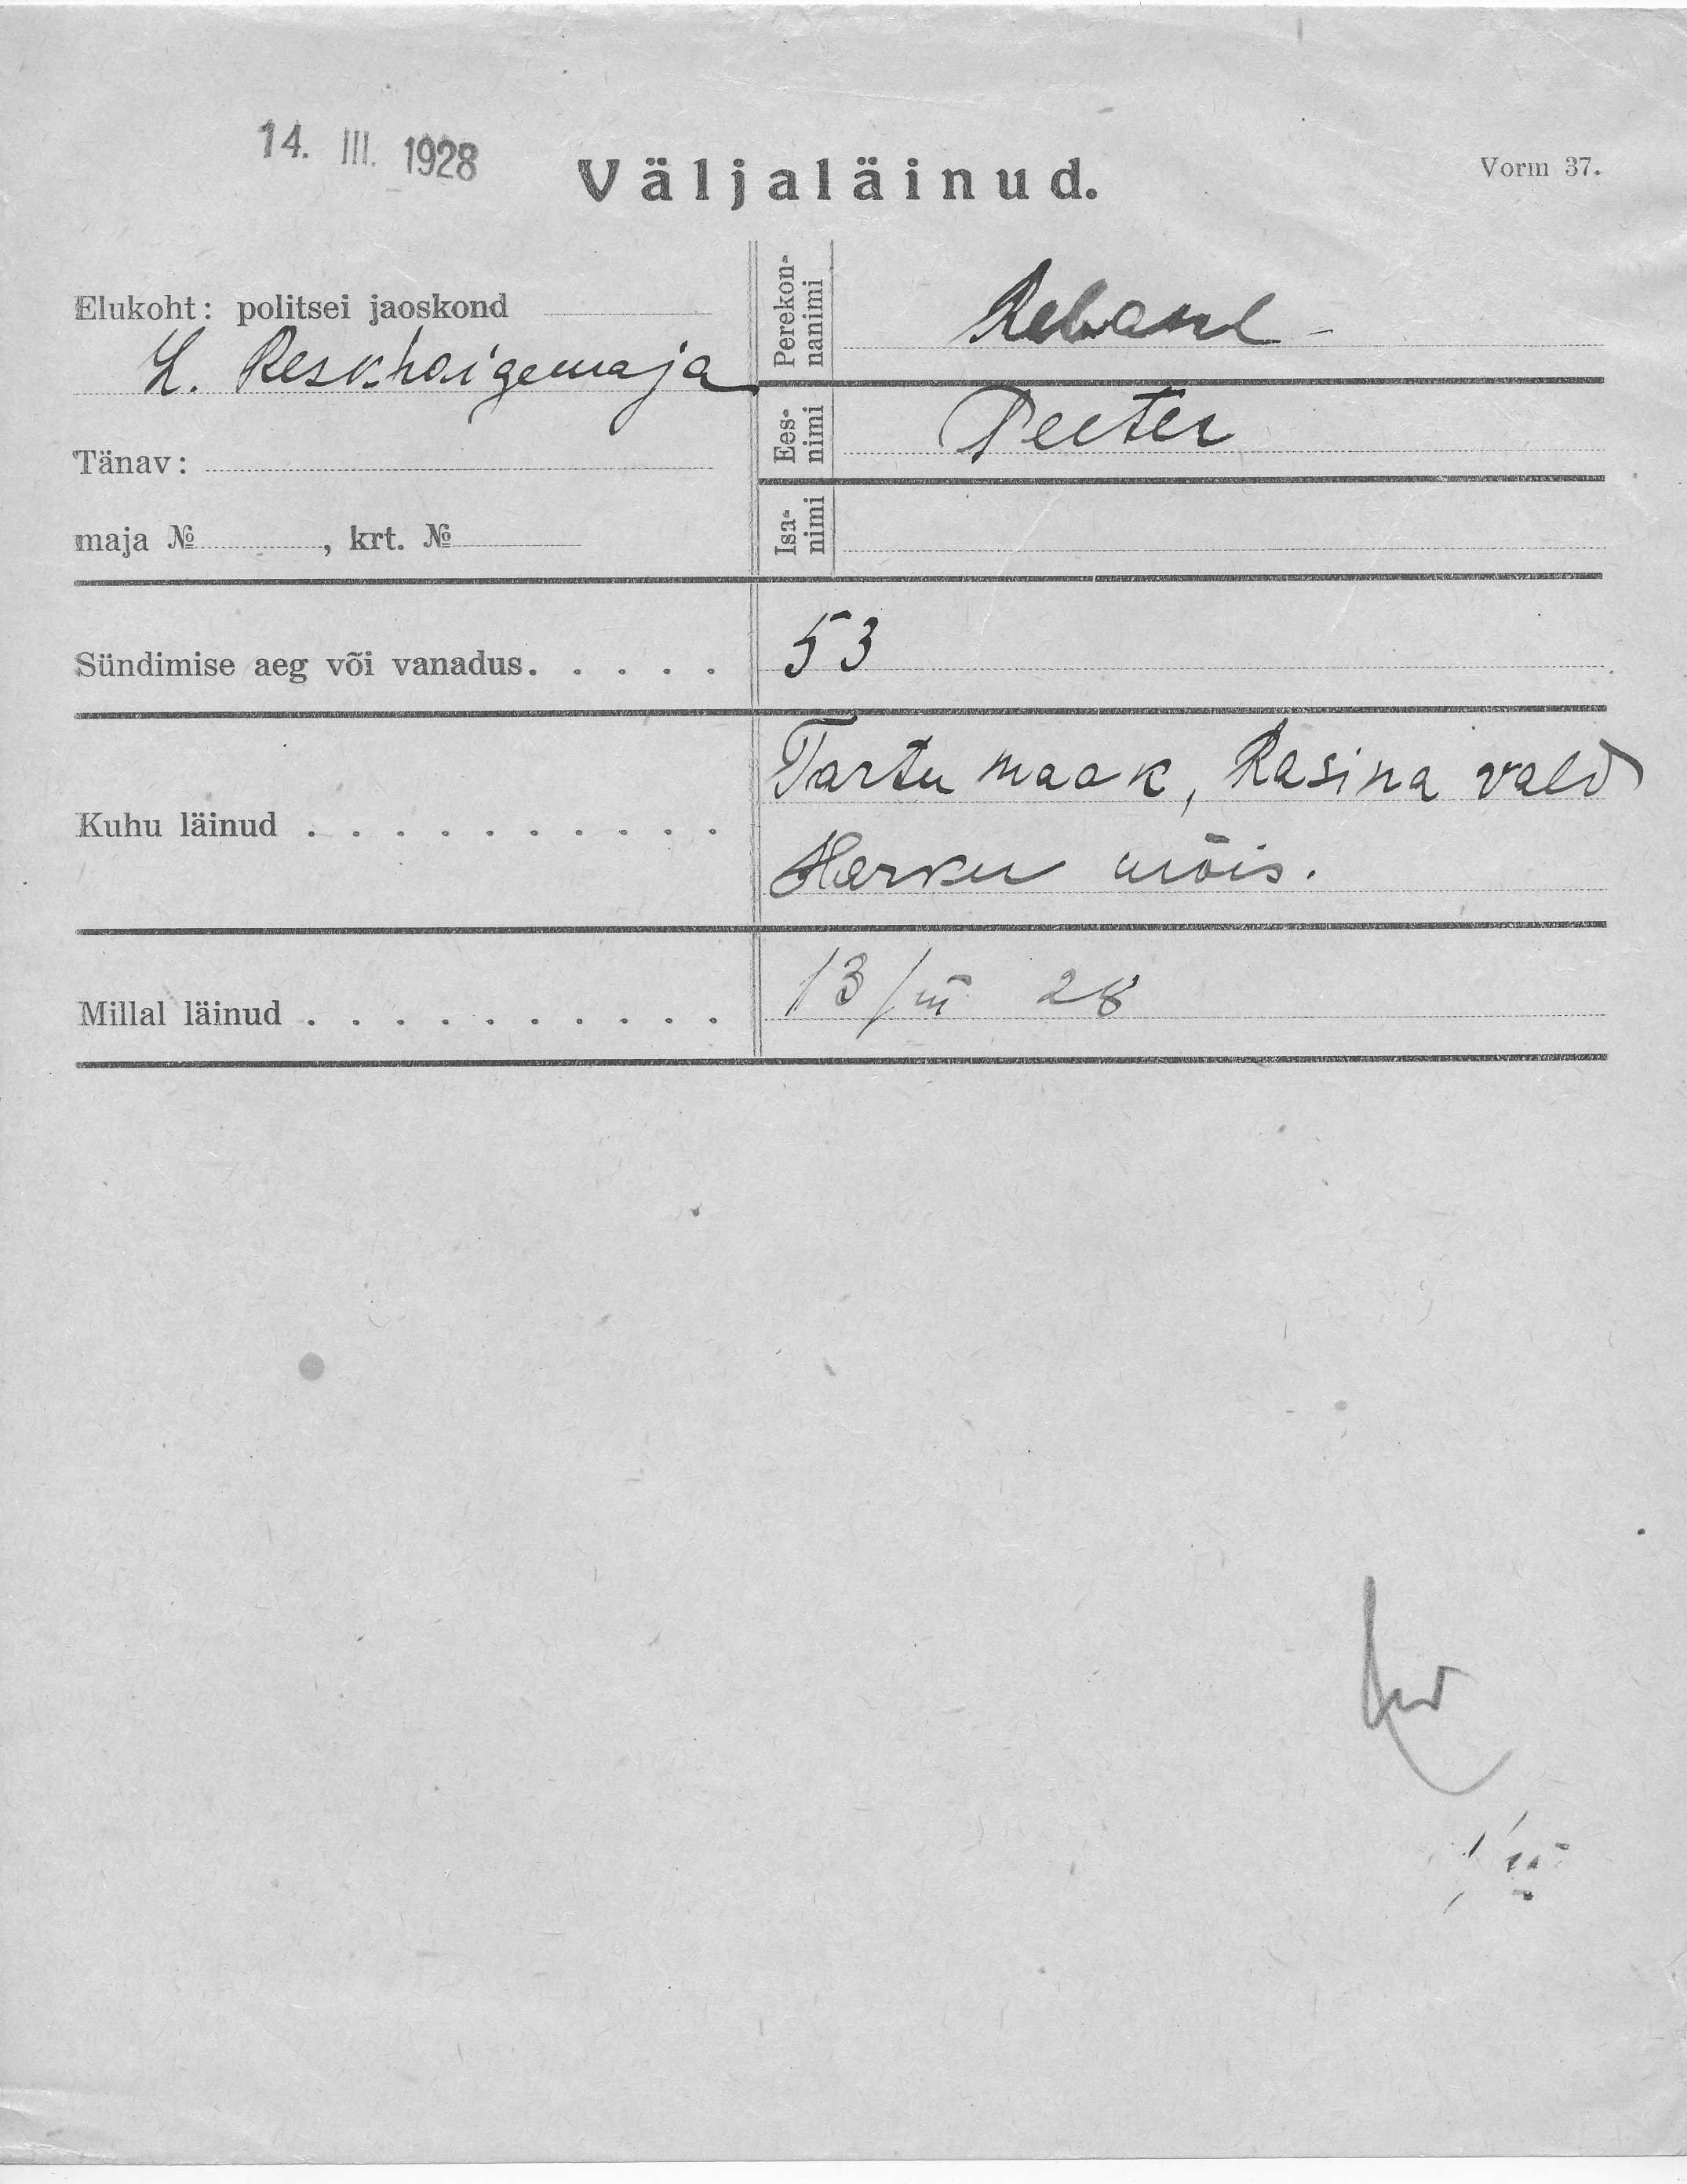 14. III. 1928
Väljaläinud.
Vorm 37.
Elukoht: politsei jaoskond
L. Keskhaigemaja
Tänav:
maja №, krt. №
Perekon-
nanimi
Rebane
Ees-
nimi
Peeter
Isa-
nimi
Sündimise aeg või vanadus. . . . .
53
Kuhu läinud . . . . . . . . . .
Tartu maak, Rasina vald
Harku mõis.
Millal läinud . . . . . . . . . .
13/III 28